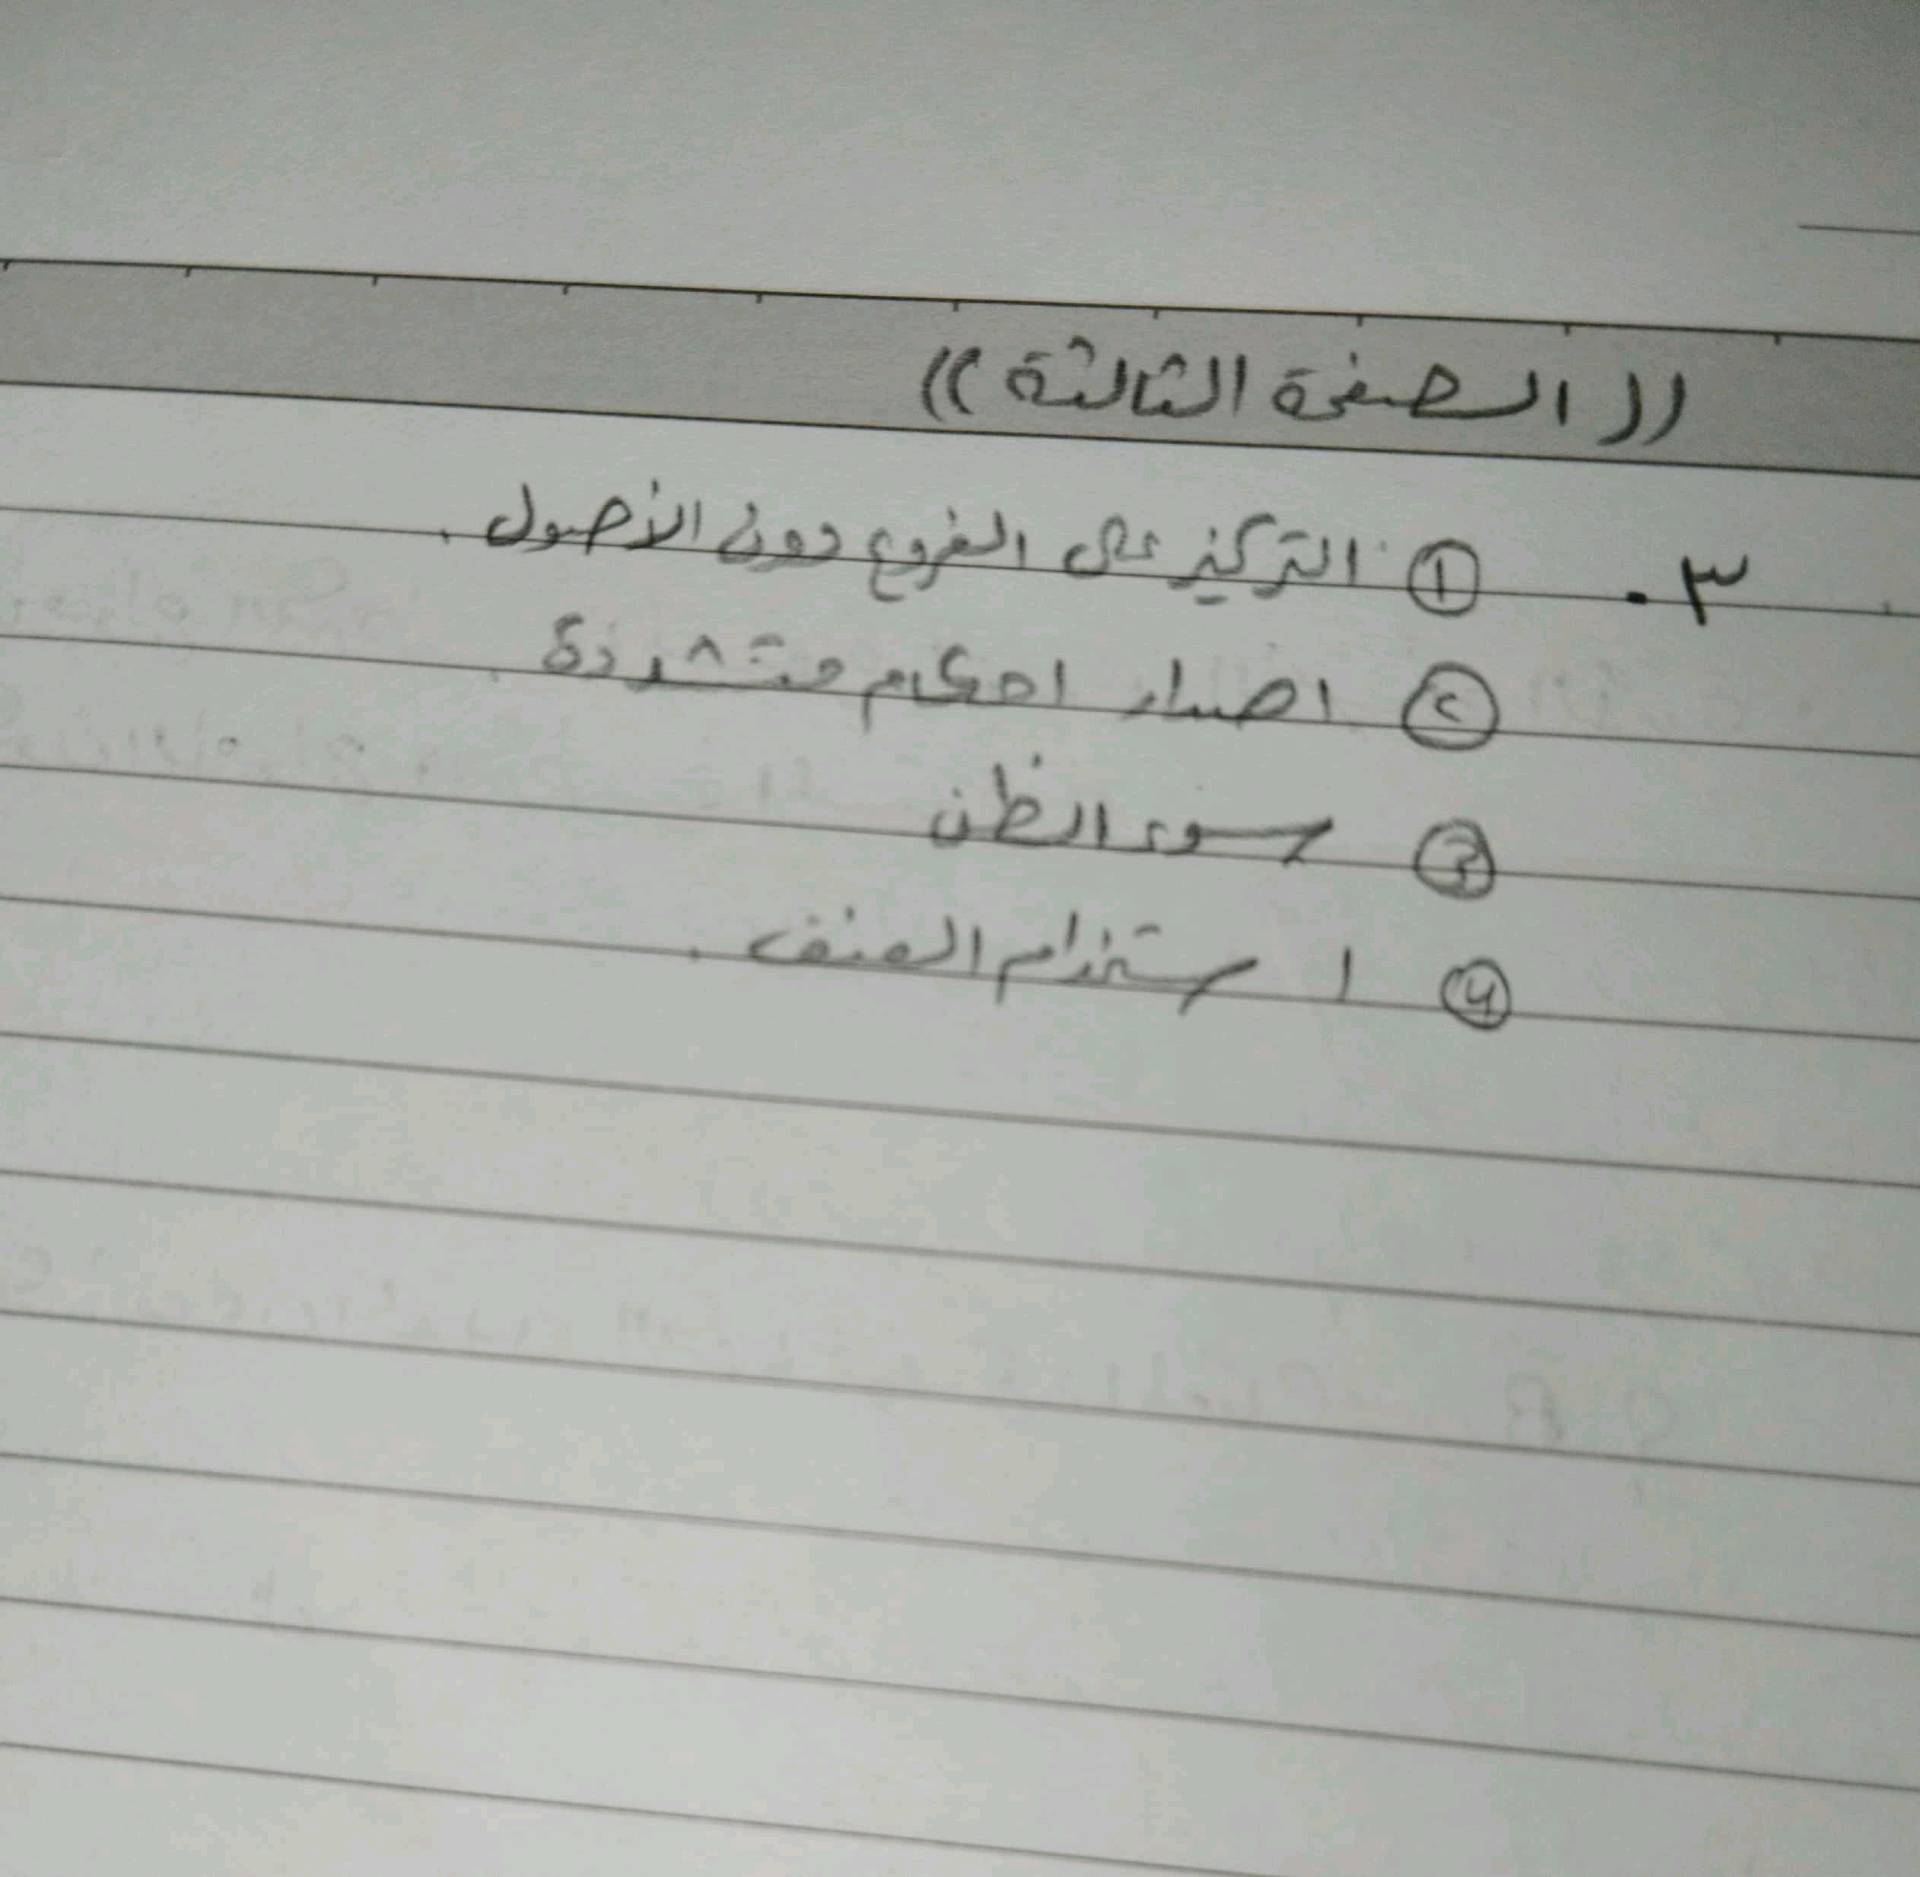 (( الصفحة الثالثة ))
٣. ① التركيز على الفروع دون الأصول.
② اصدار احكام متشددة.
③ سوء الظن
④ استخدام العنف.